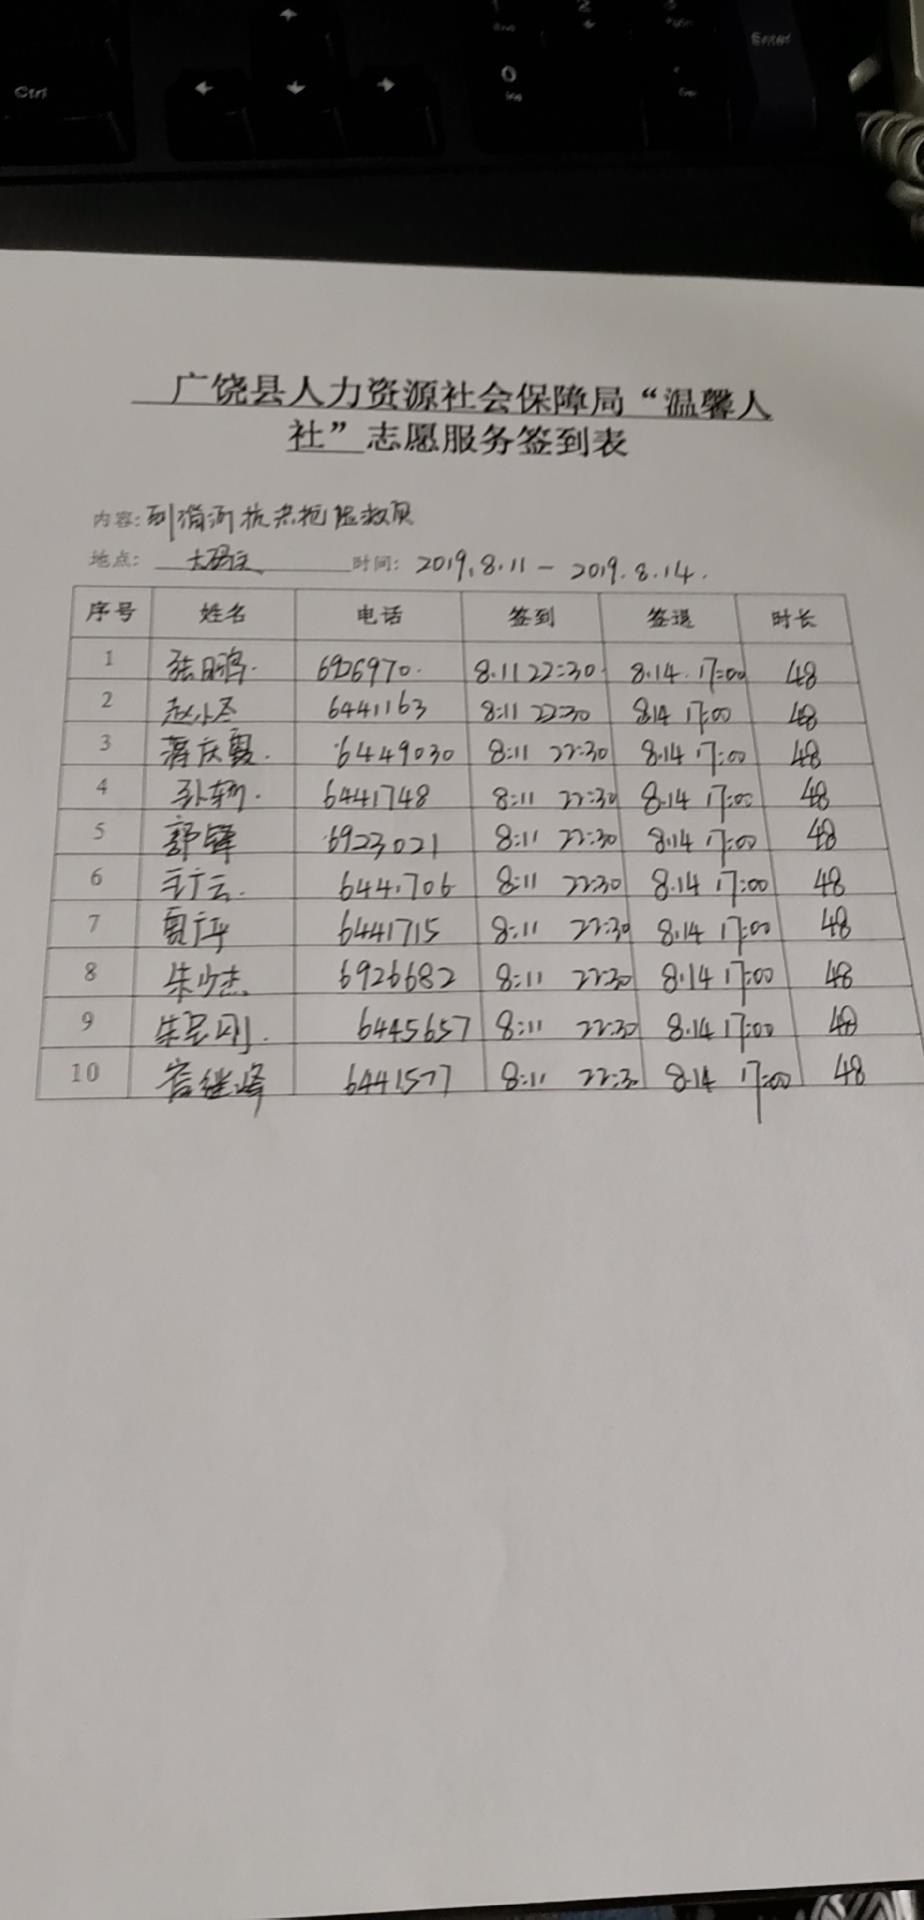 Ctrl
0
Ins
Enter
广饶县人力资源社会保障局“温馨人
社”志愿服务签到表
内容: 到淄河抗洪抢险救灾
地点: 大码头 时间: 2019.8.11 — 2019.8.14.
序号 姓名 电话 签到 签退 时长
1 张鹏 6926970. 8.11 22:30 8.14. 17:00 48
2 赵小丞 6441163 8:11 22:30 8.14 17:00 48
3 蒋庆霞. 6449030 8:11 22:30 8.14 17:00 48
4 孙轲. 6441748 8:11 22:30 8.14 17:00 48
5 舒锋 6923021 8:11 22:30 8.14 17:00 48
6 王广云. 6441706 8:11 22:30 8.14 17:00 48
7 夏广平 6441715 8:11 22:30 8.14 17:00 48
8 朱少杰 6926682 8:11 22:30 8.14 17:00 48
9 朱呈刚. 6445657 8:11 22:30 8.14 17:00 48
10 宫继峰 6441577 8:11 22:30 8.14 17:00 48